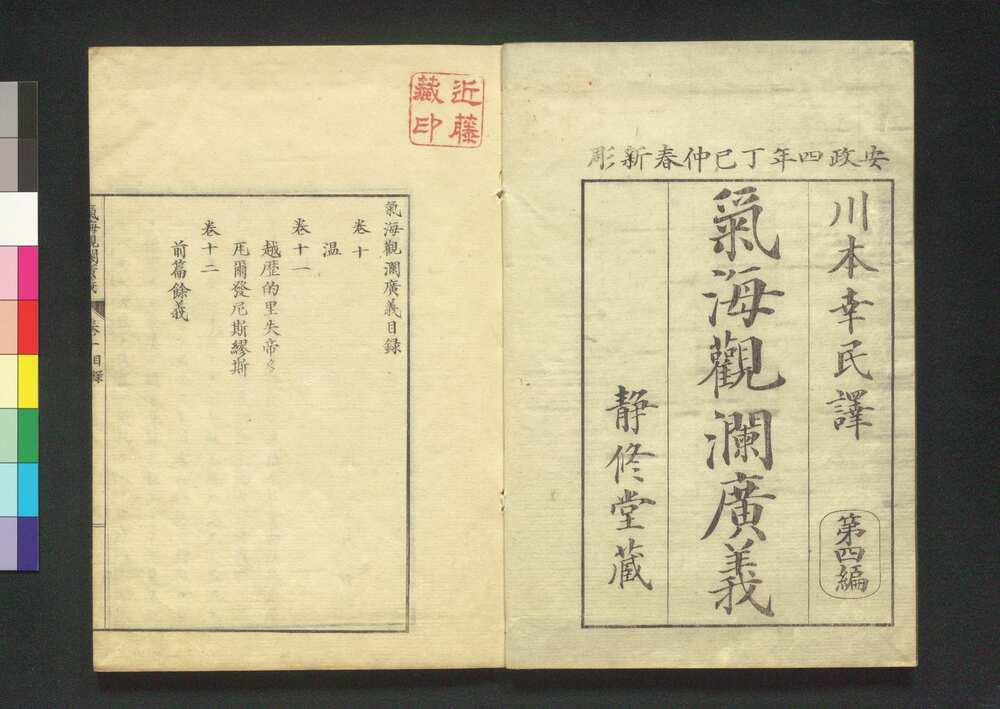 安政四年丁巳仲春新彫
川本幸民譯
第四編
氣海觀瀾廣義
靜修堂蔵
近藤
藏印
氣海觀瀾廣義目録
卷十
温
卷十一
越歴的里失帝多
瓦爾發尼斯繆斯
卷十二
前篇餘義
氣海觀瀾廣義
卷十目録